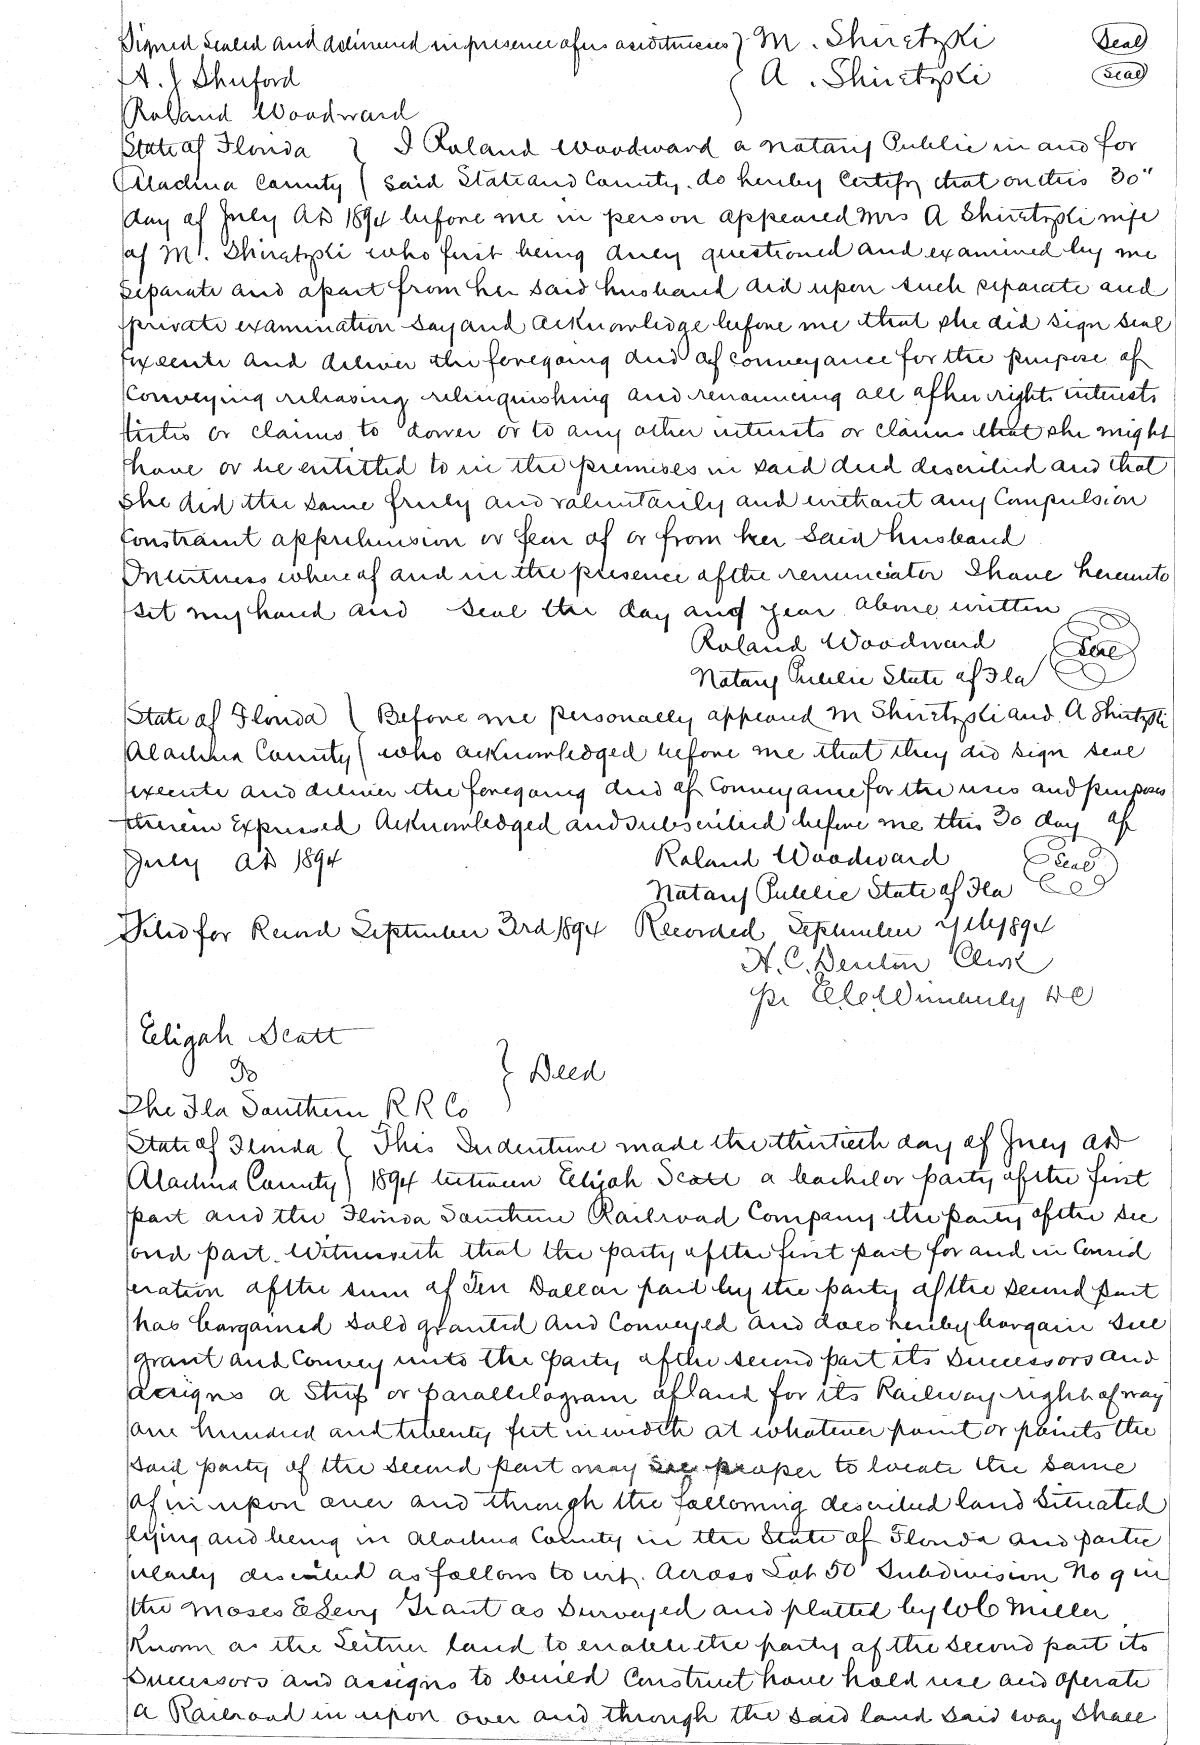 Signed Sealed and delivered in presence of us as witnesses } M. Shiretzki (Seal)
A. J Shuford { A. Shiretzki (Seal)
Roland Woodward
State of Florida } I Roland Woodward a Notary Public in and for
Alachua County ( said State and County. do hereby Certify that on this 30"
day of July AD 1894 before me in person appeared Mrs A Shiretzki wife
of M. Shiretzki who first being duly questioned and examined by me
separate and apart from her said husband did upon such separate and
private examination say and acknowledge before me that she did sign seal
execute and deliver the foregoing deed of conveyance for the purpose of
Conveying releasing relinquishing and renouncing all of her right interests
titles or claims to dower or to any other interests or claims that she might
have or be entitled to in the premises in said deed described and that
she did the same freely and voluntarily and without any Compulsion
Constraint apprehension or fear of or from her said husband
In witness whereof and in the presence of the renunciator I have hereunto
set my hand and seal the day and year above written
Roland Woodward (Seal)
Notary Public State of Fla
State of Florida { Before me personally appeared M Shiretzki and A Shiretzki
Alachua County ( who acknowledged before me that they did sign seal
execute and deliver the foregoing deed of Conveyance for the uses and purposes
therein Expressed Acknowledged and subscribed before me this 30 day of
July AD 1894 Roland Woodward (Seal)
Notary Public State of Fla
Filed for Record September 3rd 1894 Recorded September 1894
H. C. Denton Clerk
pr Wimberly DC
Elijah Scott
To } Deed
The Fla Southern R R Co
State of Florida { This Indenture made the thirtieth day of July AD
Alachua County ) 1894 between Elijah Scott a bachelor party of the first
part and the Florida Southern Railroad Company the party of the sec
ond part. Witnesseth that the party of the first part for and in Consid
eration of the sum of Ten Dollar paid by the party of the second part
has bargained sold granted and Conveyed and does hereby bargain sell
grant and Convey unto the party of the second part its Successors and
assigns a Strip or parallelogram of land for its Railway right of way
one hundred and twenty feet in width at whatever point or points the
said party of the second part may see proper to locate the same
of in upon over and through the following described land Situated
lying and being in Alachua County in the State of Florida and partic
ularly described as follows to wit. Across Lot 50 Subdivision No 9 in
the Moses E Levy Grant as Surveyed and platted by W C Miller
Known as the Leitner land to enable the party of the second part its
Successors and assigns to build Construct have hold use and operate
a Railroad in upon over and through the said land said way shall